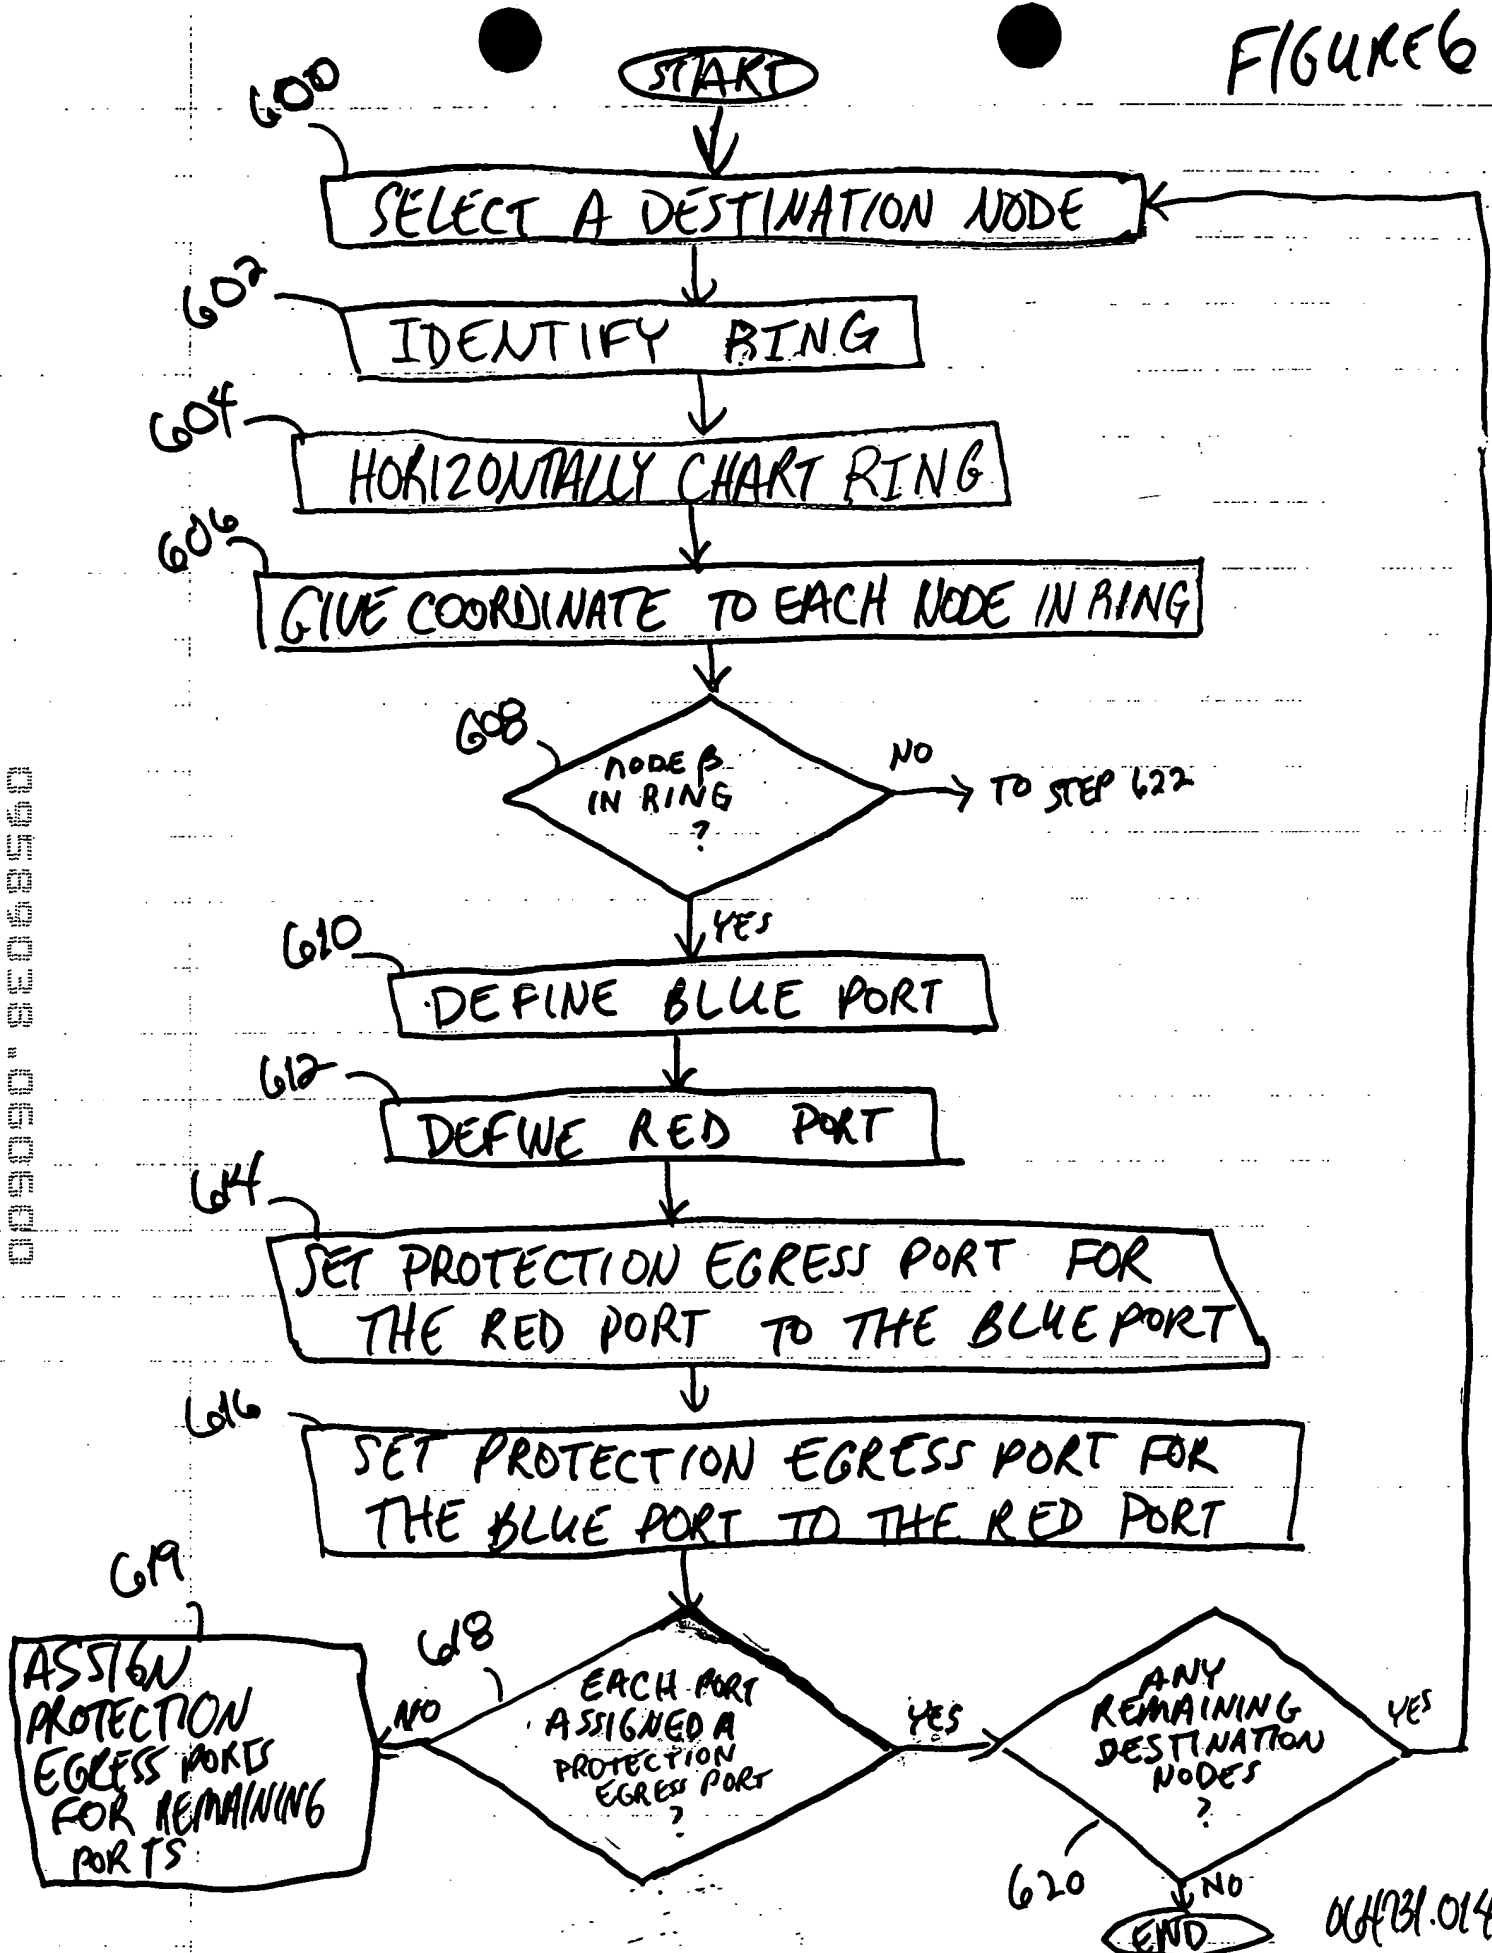 FIGURE 6
START
600
SELECT A DESTINATION NODE
602
IDENTIFY RING
604
HORIZONTALLY CHART RING
606
GIVE COORDINATE TO EACH NODE IN RING
608
NODE β
IN RING
?
NO
TO STEP 622
YES
610
DEFINE BLUE PORT
612
DEFINE RED PORT
614
SET PROTECTION EGRESS PORT FOR
THE RED PORT TO THE BLUE PORT
616
SET PROTECTION EGRESS PORT FOR
THE BLUE PORT TO THE RED PORT
619
ASSIGN
PROTECTION
EGRESS PORTS
FOR REMAINING
PORTS
NO
618
EACH PORT
ASSIGNED A
PROTECTION
EGRESS PORT
?
YES
ANY
REMAINING
DESTINATION
NODES
?
YES
620
NO
END
09589038.060600